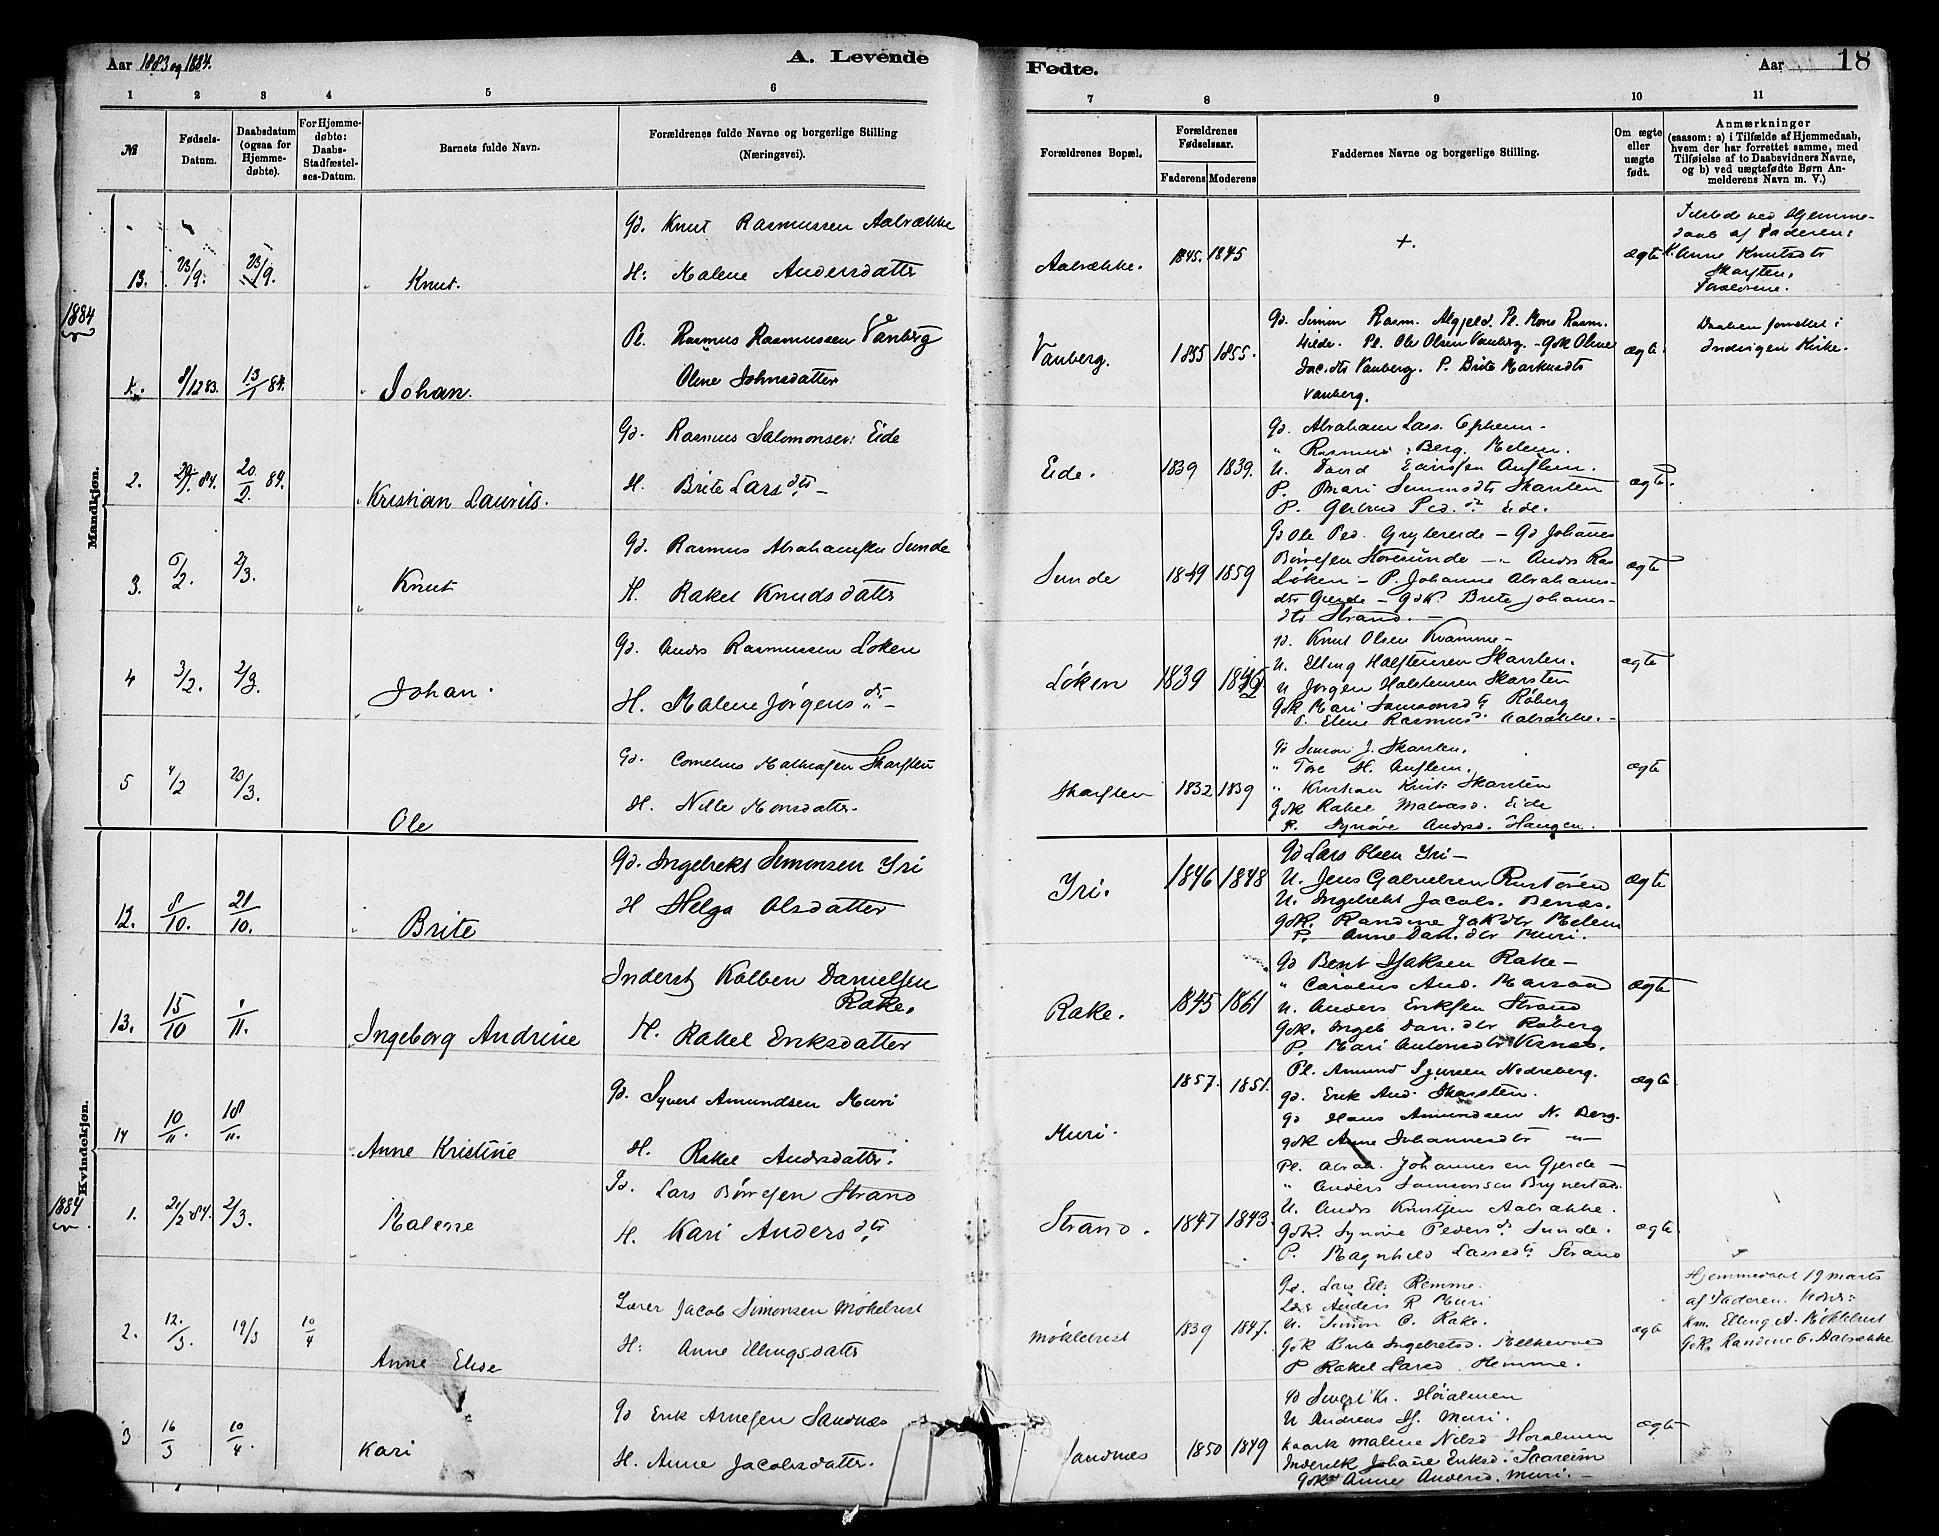 Aar 1883 og 1884.
A. Levende
Fødte.
Aar 18
1 2 3 4 5 6 7 8 9 10 11
№
Fødsels-
Datum.
Daabsdatum
(ogsaa for
Hjemme-
døbte).
For Hjemme-
døbte:
Daabs-
Stadfæstel-
ses-Datum.
Barnets fulde Navn.
Forældrenes fulde Navne og borgerlige Stilling
(Næringsvei).
Forældrenes Bopæl.
Forældrenes
Fødselsaar.
Faderens Moderens
Faddernes Navne og borgerlige Stilling.
Om ægte
eller
uægte
født.
Anmærkninger
(saasom: a) i Tilfælde af Hjemmedaab,
hvem der har forrettet samme, med
Tilføielse af to Daabsvidners Navne,
og b) ved uægtefødte Børn An-
melderens Navn m. V.)
Mandkjøn.
13. 23/9. 23/9. Knut.
Gd. Knut Rasmussen Aalrække
H: Malene Andersdatter
Aalrække. 1845. 1845
+.
ægte
ved Hjemme-
daab af Faderen:
K. Anne Knutsdtr
Skarsten.
Forældrene.
1884
1. 8/12 83. 13/1 84. Johan.
Pl. Rasmus Rasmussen Vanberg
Oline Johnsdatter
Vanberg. 1855 1855.
Gd. Simon Rasm. Algjeld. Pl. Mons Rasm.
Hilde. Pl. Ole Olsen Vanberg. - Gdk Oline
Jac.dtr Vanberg. P. Brite Markusdtr
Vanberg.
ægte.
Daaben forrettet i
Indvigen Kirke.
2. 29/1. 84. 20/2. 84. Kristian Laurits.
Gd. Rasmus Salomonsen Eide
H. Brite Lars dtr -
Eide. 1839 1839.
Gd. Abraham Lass. Opheim -
" Rasmus Berg. Melem.
U. David Auflem.
P. Mari Simonsdtr Skarsten
P. Gertrud Ped. dr Eide.
ægte.
3. 6/2. 2/3. Knut
Gd. Rasmus Abrahamsen Sunde
H. Rakel Knudsdatter
Sunde 1849 1859
Gd Ole Ped. Grytereide - Gd Johanes
Børresen Storesunde - " Anders Ras
Løken - P. Johanne Abrahams-
dtr Gjerde - Gdk. Brite Johanes-
dtr Strand. -
ægte
4 3/2. 2/3. Johan.
Gd. Anders Rasmussen Løken
H. Malene Jørgens dtr -
Løken 1839
Gd. Knut Olsen Kvamme -
U. Elling Halstensen Skarsten.
U Jørgen Halstensen Skarsten
Gdk Mari Samsonsdtr Røberg
P. Eline Rasmusd. Aalrække. -
ægte
5 4/2 20/3. Ole
Gd. Cornelius Mathiasen Skarsten
H. Nille Monsdatter.
Skarsten 1832 1839
Gd Simon J. Skarsten.
" Tore H. Auflem.
" Kristian Knut. Skarsten
Gdk Rakel Mathiasd. Eide
P. Synøve Andersd. Haugen.
ægte
Kvindekjøn.
12. 8/10. 21/10. Brite
Gd. Ingebrekt Simonsen Yri
H Helga Olsdatter
Yri. 1846 1848
Gd Lars Olsen Yri -
U. Jens Gabrielsen Rustøen
U. Ingebrekt Jacobs. Benæs.
Gdk. Randine Jak.dtr Melem
P. Anne Dan.dtr Muri.
ægte
13. 15/10 1/11. Ingeborg Andrine
Inderst Kolben Danielsen
Rake.
H. Rakel Eriksdatter
Rake. 1845 1861
Gd Bent Isaksen Rake -
" Carolus And. Marsaa
U. Anders Eriksen Strand
Gdk. Ingeb Dan.dtr Røberg
P. Mari Antonsdtr Visnes.
ægte
14 10/11. 18/11. Anne Kristine
Gd. Syvert Amundsen Muri
H. Rakel Andersdatter.
Muri. 1857. 1851.
Pl. Amund Sjursen Nedreberg.
Gd. Erik And. Skarsten.
Gd Hans Amundsen N. Berg.
Gdk Anne Johannesdtr -"-
ægte
1884
1. 21/2 84. 2/3. Malene
Gd. Lars Børresen Strand
H. Kari Anders dtr
Strand. 1847 1843.
Pl. Abrah. Johannesen Gjerde -
" Anders Samsonsen Brynestad.
U. Anders Knutsen Aalrække.
Gdk. Synøve Peders dr Sunde.
P. Magnhild Lassedtr Strand
ægte.
2. 12./3. 19/3 10/4 Anne Elise
Lærer Jacob Simonsen Møkelrust
H. Anne Ellingsdatter
Møklebust 1839 1847.
Gd. Lars El. Remme.
Lær. Anders R Muri
U. Simon C. Rake.
Gdk Brite Ingebretsd. Melkevold
P Rakel Larsd. Hemme.
ægte
Hjemmedøbt 19 marts
af Faderen.
Km. Elling A. Møklebust
Gdk. Randine C. Aalrække
3 16/3 10/4. Kari
Gd Erik Arnesen Sandnæs
H. Anne Jacobsdatter.
Sandnæs 1850 1849
Gd Sivert Kr. Horalmen
U Andreas H. Muri.
Kaark Malene Nilsd Horalmen
Inderstk Johane Eriksd. Taareim
Gdk Anne Andersd. Muri. -
ægte